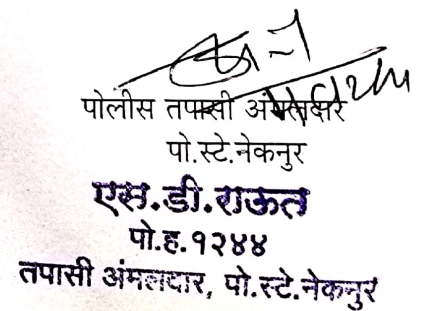 पोलीस तपासी अंमलदार
पो.स्टे.नेकनुर
एस.डी.राऊत
पो.ह.१२४४
तपासी अंमलदार, पो.स्टे.नेकनुर